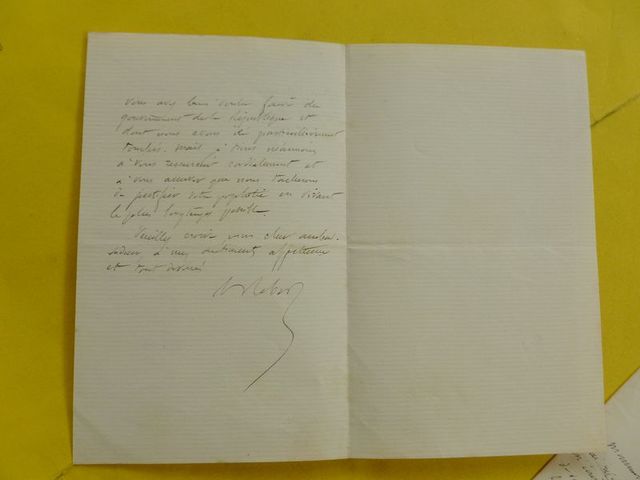 vous avez bien voulu faire du
gouvernement de la République et
dont nous avons été particulièrement
touchés. mais j'tiens néanmoins
à vous remercier cordialement et
à vous assurer que nous tacherons
de justifier votre prophétie en vivant
le plus longtemps possible.
Veuillez croire mon cher ambas-
sadeur, à mes sentiments affectueux
et tout dévoués